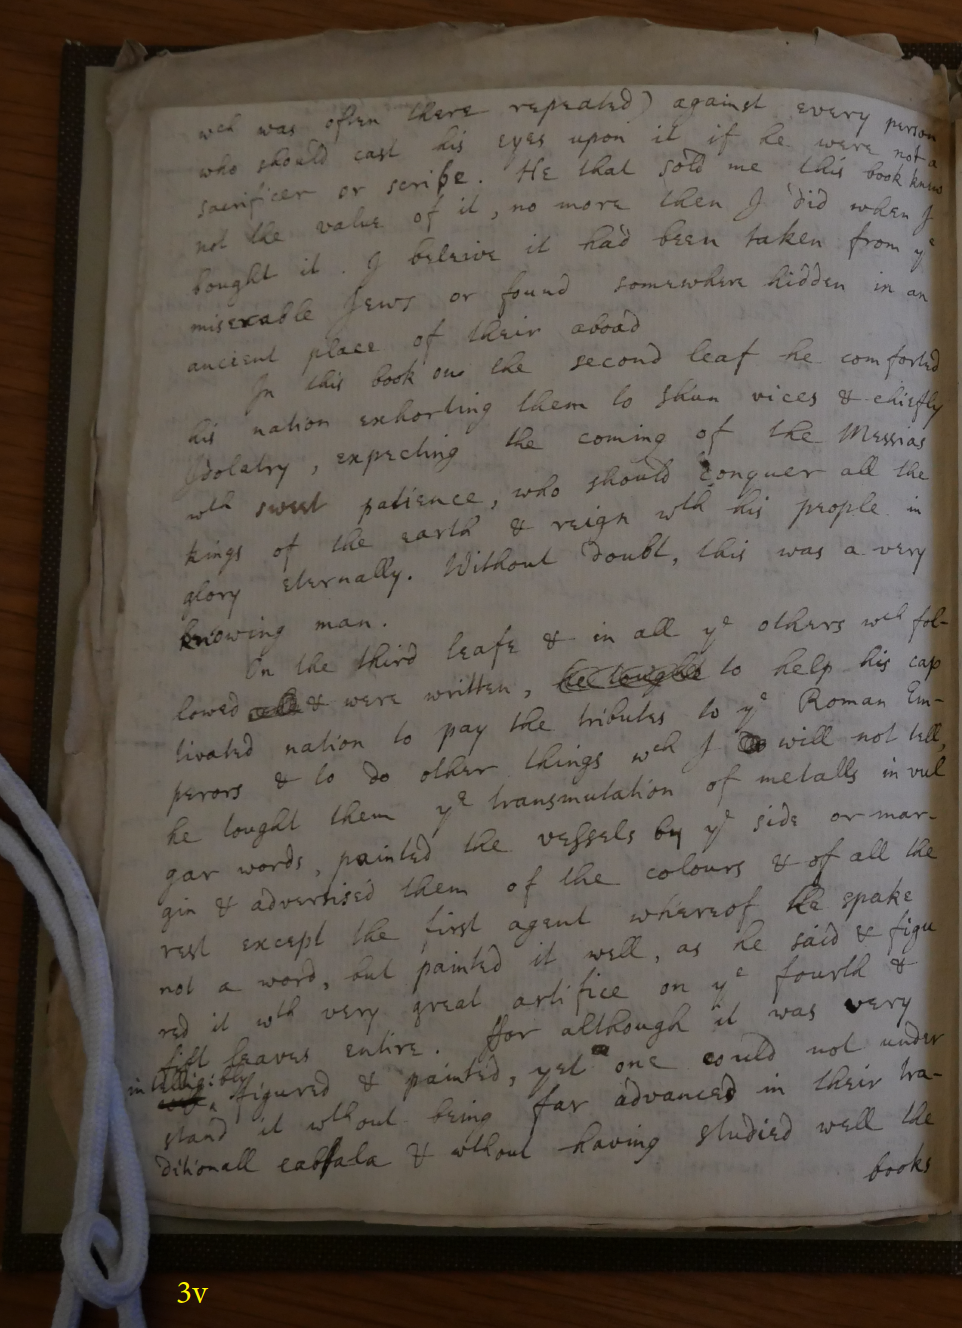 wch was often there repeated) against every person
who should cast his eyes upon it if he were not a
sacrificer or scribe. He that sold me this book knew
not the value of it, no more then I did when I
bought it. I beleive it had been taken from ye
miserable Jews or found somewhere hidden in an
ancient place of their aboad
In this book on the second leaf he comforted
his nation exhorting them to shun vices & chiefly
Idolatry, expecting the coming of the Messias
wth sweet patience, who should conquer all the
kings of the earth & reign wth his people in
glory eternally. Without doubt, this was a very
knowing man.
In the third leafe & in all ye others wch fol-
lowed & were written, he tought to help his cap
tivated nation to pay the tributes to ye Roman Em-
perors & to do other things wch I will not tell,
he tought them ye transmutation of metalls in vul
gar words, painted the vessels by ye side or mar-
gin & advertised them of the colours & of all the
rest except the first agent whereof he spake
not a word, but painted it well, as he said & figu
red it wth very great artifice on ye fourth &
fift leaves entire. ffor although it was very
intelligibly figured & painted, yet one could not under
stand it wthout being far advanced in their tra-
ditionall cabbala & wthout having studied well the
books
3v